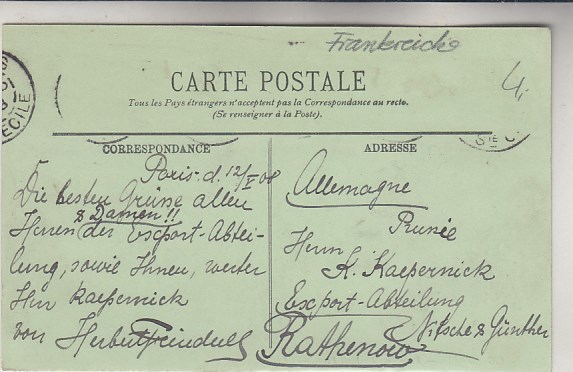 Frankreich
CARTE POSTALE
Tous les Pays étrangers n'acceptent pas la Correspondance au recto.
(Se renseigner à la Poste).
CORRESPONDANCE
Paris d. 12/V 08
Die besten Grüsse allen
& Damen!!
Herren der Export-Abtei-
lung, sowie Ihnen, werter
Herr Kaepernick
von Herbert
ADRESSE
Allemagne
Herrn
K. Kaepernick
Export-Abteilung
Nitsche & Günther
Rathenow
ECILE
STE C